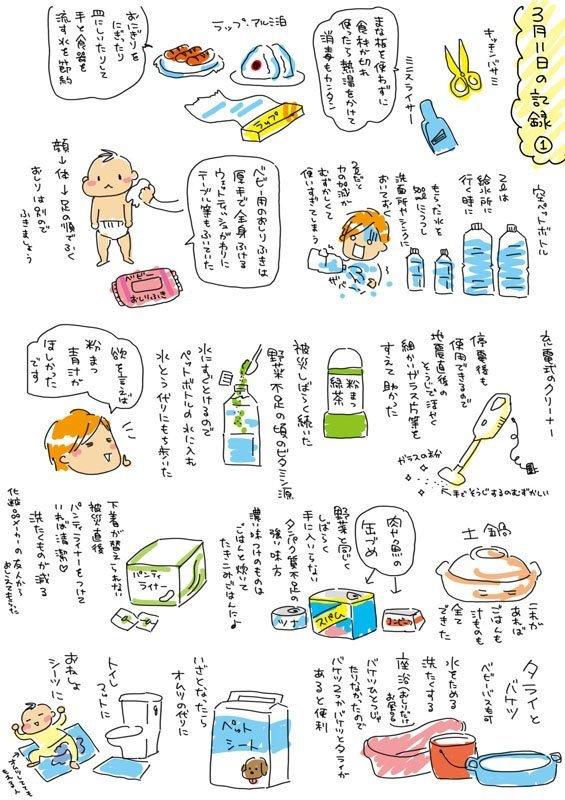 3月11日の記録①
キッチンバサミ
ミニスライサー
まな板を使わずに
食材が切れ
使ったら熱湯をかけて
消毒もカンタン
ラップ・アルミ泊
ラップ
おにぎりを
にぎったり
皿にしいたりして
手と食器を
流す水を節約
空ペットボトル
2ℓは
給水所に
行く時に
もらった水を
500mlにうつし
洗面所やシンクに
おいておく
2ℓだと
力の加減が
むずかしくて
使いすぎてしまう
ザバ
ベビー用のおしりふきは
厚手で全身ふける
ウェットティッシュがわりに
テーブル等もふいていた
ベビー
おしりふき
顔→体→足の順でふく
おしりは別ので
ふきましょう
充電式のクリーナー
停電後も
使用できるので
地震直後の
そうじで活やく
細かいガラス片等を
すえて助かった
ガラスの粉
手でそうじするのむずかしい
粉まつ
緑茶
被災しばらく続いた
野菜不足の頃のビタミン源
水にすぐとけるので
ペットボトルの水に入れ
水とう代りにもち歩いた
欲を言えば
粉まつ
青汁が
ほしかった
です
土鍋
これが
あれば
ごはんも
汁ものも
全て
できた
肉や魚の
缶づめ
野菜と同じく
しばらく
手に入らない
タンパク質不足の
強い味方
濃い味つけのものは
ごはんと炊いて
たきこみごはんに♪
ツナ
スパム
コンビーフ
パンティ
ライナー
下着が替えられない
被災直後
パンティライナーをつけて
いれば清潔♡
洗たくものが減る
化粧品メーカーの友人から
おしえてもらった
タライと
バケツ
ベビーバスも可
水をためる
洗たくする
座浴(おしりだけお風呂)
バケツひとつじゃ
たりなかったので
バケツ2つかバケツとタライが
あると便利
ペット
シート
いざとなったら
オムツの代りに
トイレ
マットに
おねしょ
シーツに